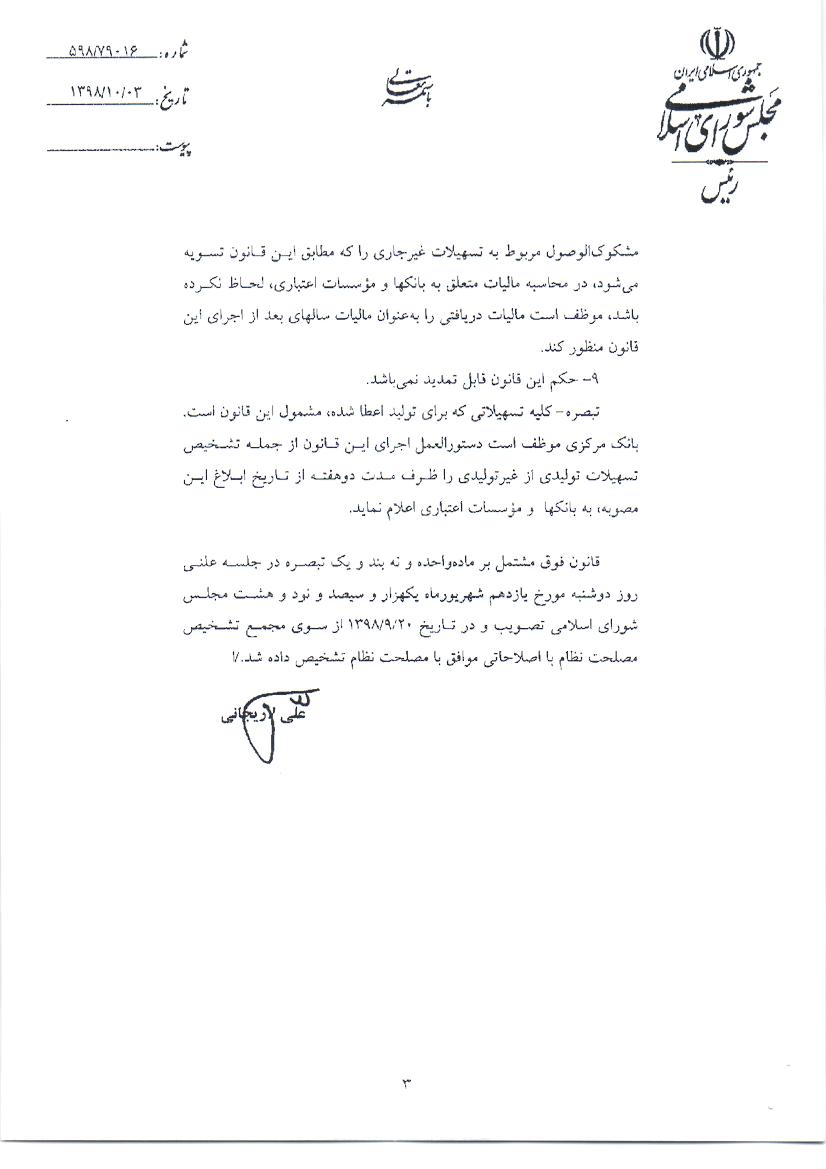 جمهوری اسلامی ایران
مجلس شورای اسلامی
رئیس
باسمه تعالی
شماره: ۵۹۸/۷۹۰۱۶
تاریخ: ۱۳۹۸/۱۰/۰۳
پیوست:
مشکوک‌الوصول مربوط به تسهیلات غیرجاری را که مطابق این قانون تسویه
می‌شود، در محاسبه مالیات متعلق به بانکها و مؤسسات اعتباری، لحاظ نکرده
باشد، موظف است مالیات دریافتی را به‌عنوان مالیات سالهای بعد از اجرای این
قانون منظور کند.
۹- حکم این قانون قابل تمدید نمی‌باشد.
تبصره- کلیه تسهیلاتی که برای تولید اعطا شده، مشمول این قانون است.
بانک مرکزی موظف است دستورالعمل اجرای این قانون از جمله تشخیص
تسهیلات تولیدی از غیرتولیدی را ظرف مدت دوهفته از تاریخ ابلاغ این
مصوبه، به بانکها و مؤسسات اعتباری اعلام نماید.
قانون فوق مشتمل بر ماده‌واحده و نه بند و یک تبصره در جلسه علنی
روز دوشنبه مورخ یازدهم شهریورماه یکهزار و سیصد و نود و هشت مجلس
شورای اسلامی تصویب و در تاریخ ۱۳۹۸/۹/۲۰ از سوی مجمع تشخیص
مصلحت نظام با اصلاحاتی موافق با مصلحت نظام تشخیص داده شد./ا
علی لاریجانی
۳